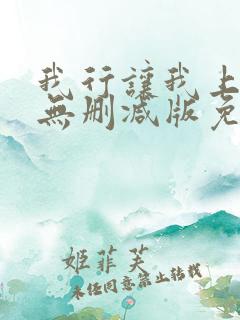 我行讓我上
無刪減版免
姬菲芙
未经同意禁止转载